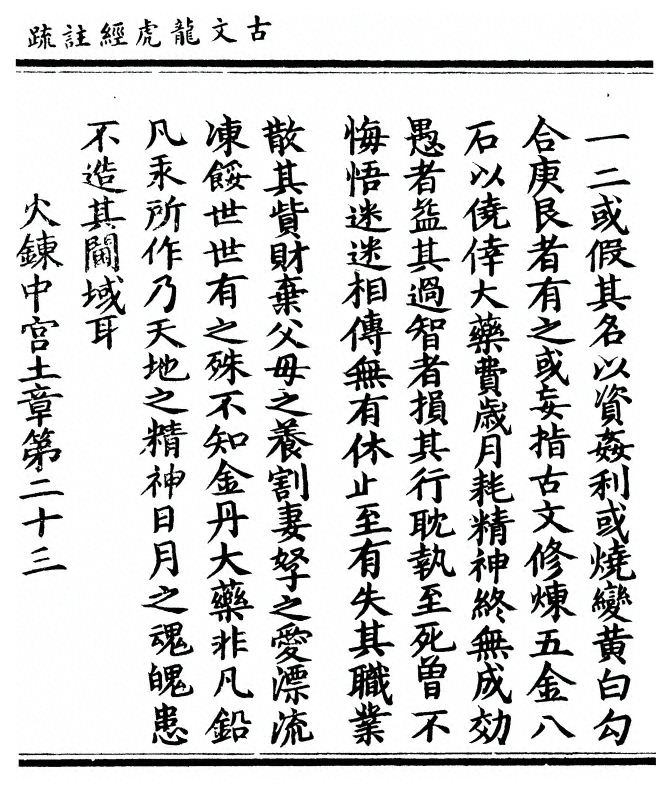 古文龍虎經註疏
一二或假其名以資姦利或燒變黃白勾
合庚艮者有之或妄指古文修煉五金八
石以僥倖大藥費歲月耗精神終無成効
愚者益其過智者損其行耽執至死曾不
悔悟迷迷相傳無有休止至有失其職業
散其貲財棄父母之養割妻孥之愛漂流
凍餒世世有之殊不知金丹大藥非凡鉛
凡汞所作乃天地之精神日月之魂魄患
不造其閫域耳
火鍊中宮土章第二十三